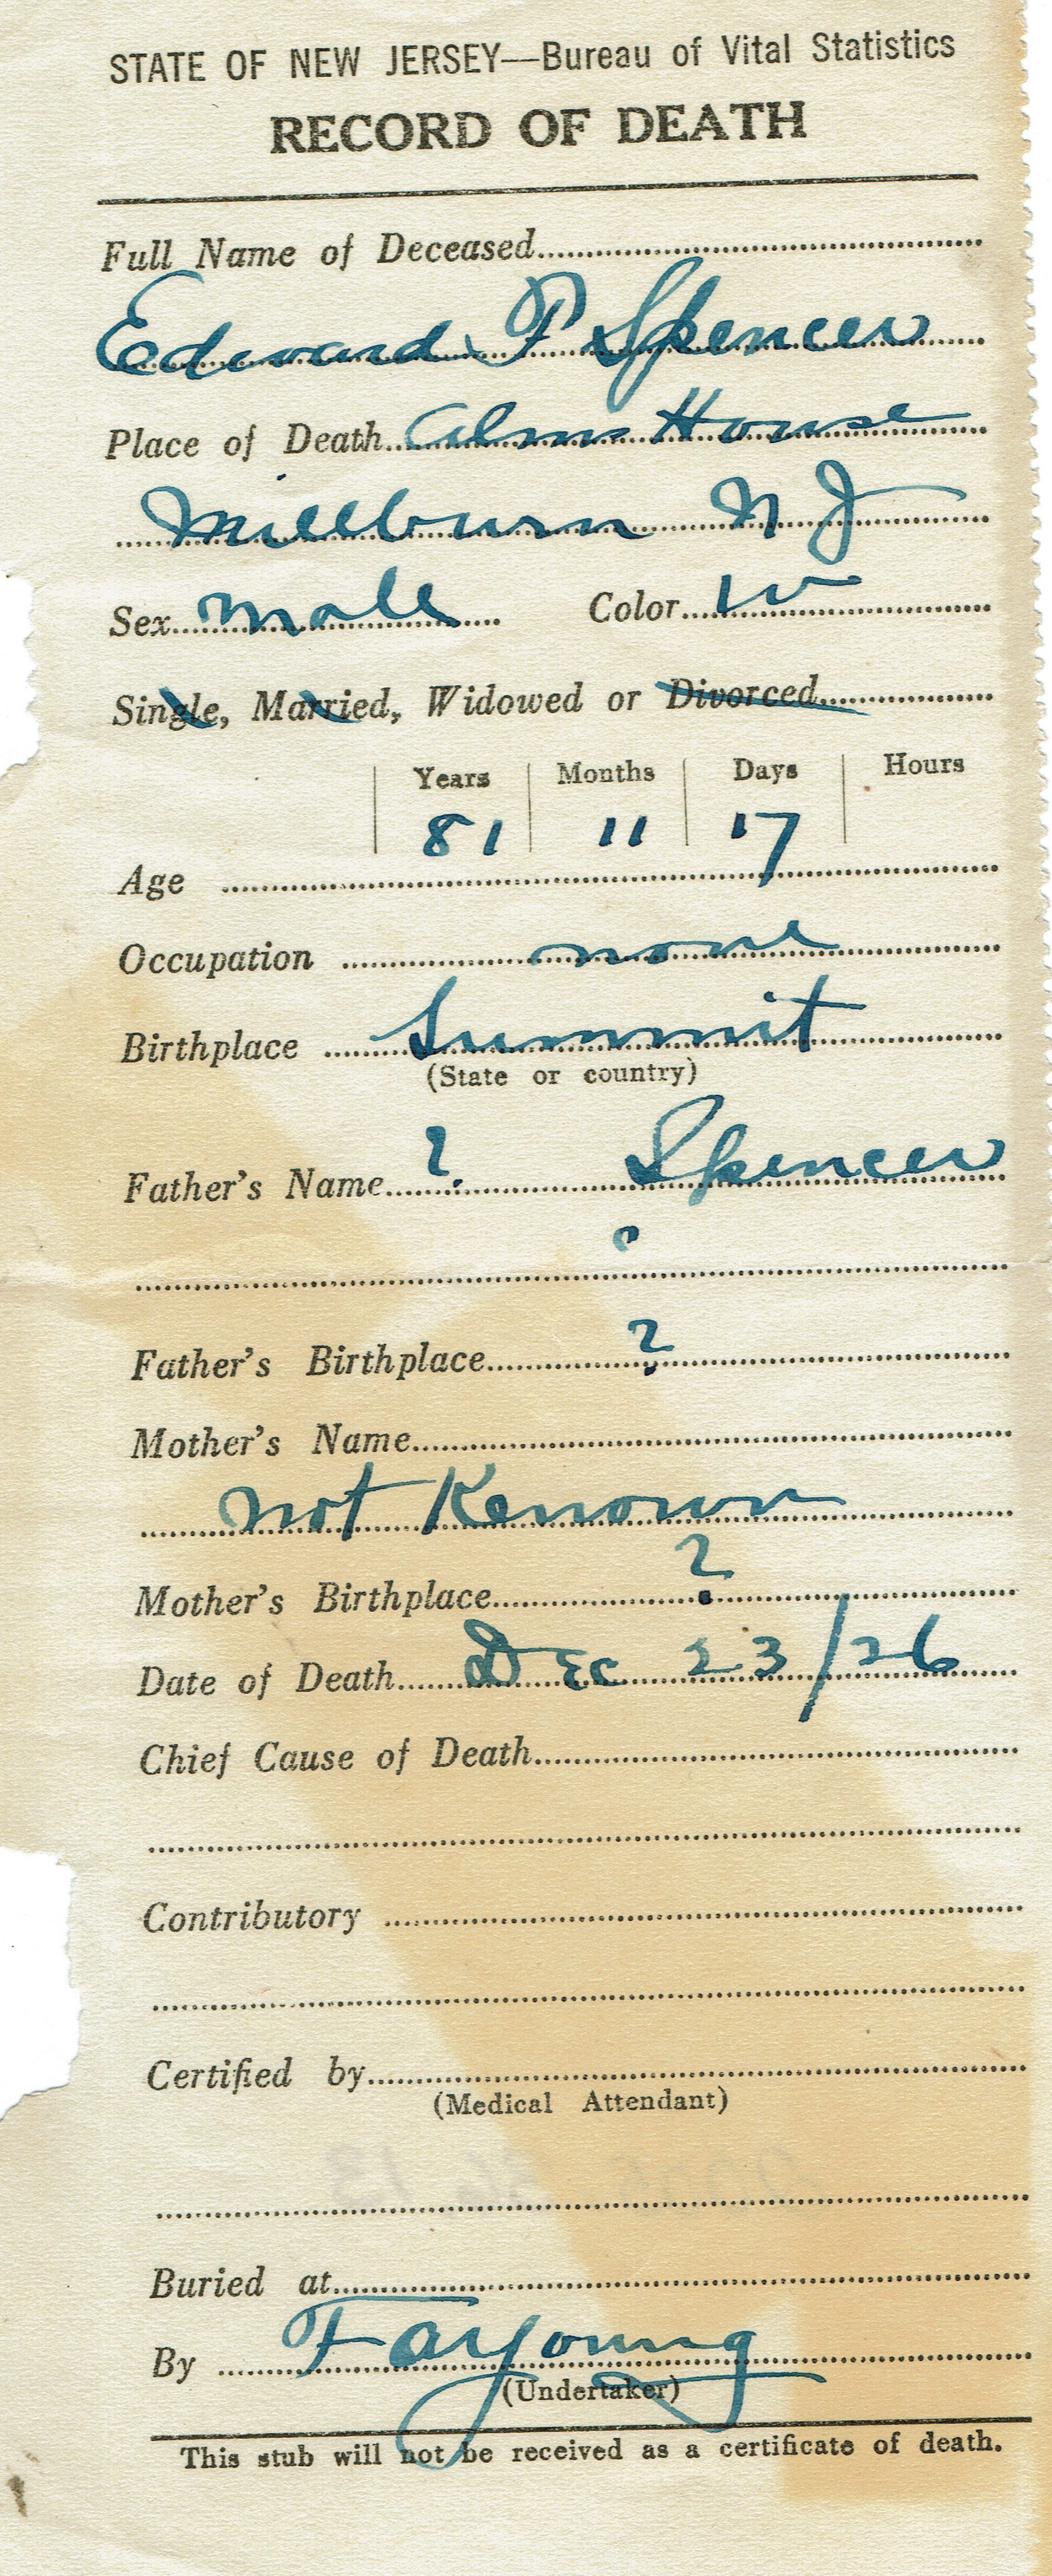 STATE OF NEW JERSEY—Bureau of Vital Statistics
RECORD OF DEATH
Full Name of Deceased
Edward P Spencer
Place of Death Alms House
Millburn N J
Sex male Color W
Single, Married, Widowed or Divorced
Years Months Days Hours
81 11 17
Age
Occupation none
Birthplace Summit
(State or country)
Father's Name ? Spencer
?
Father's Birthplace ?
Mother's Name
not Kenown
Mother's Birthplace ?
Date of Death Dec 23/26
Chief Cause of Death
Contributory
Certified by
(Medical Attendant)
Buried at
By F A Young
(Undertaker)
This stub will not be received as a certificate of death.